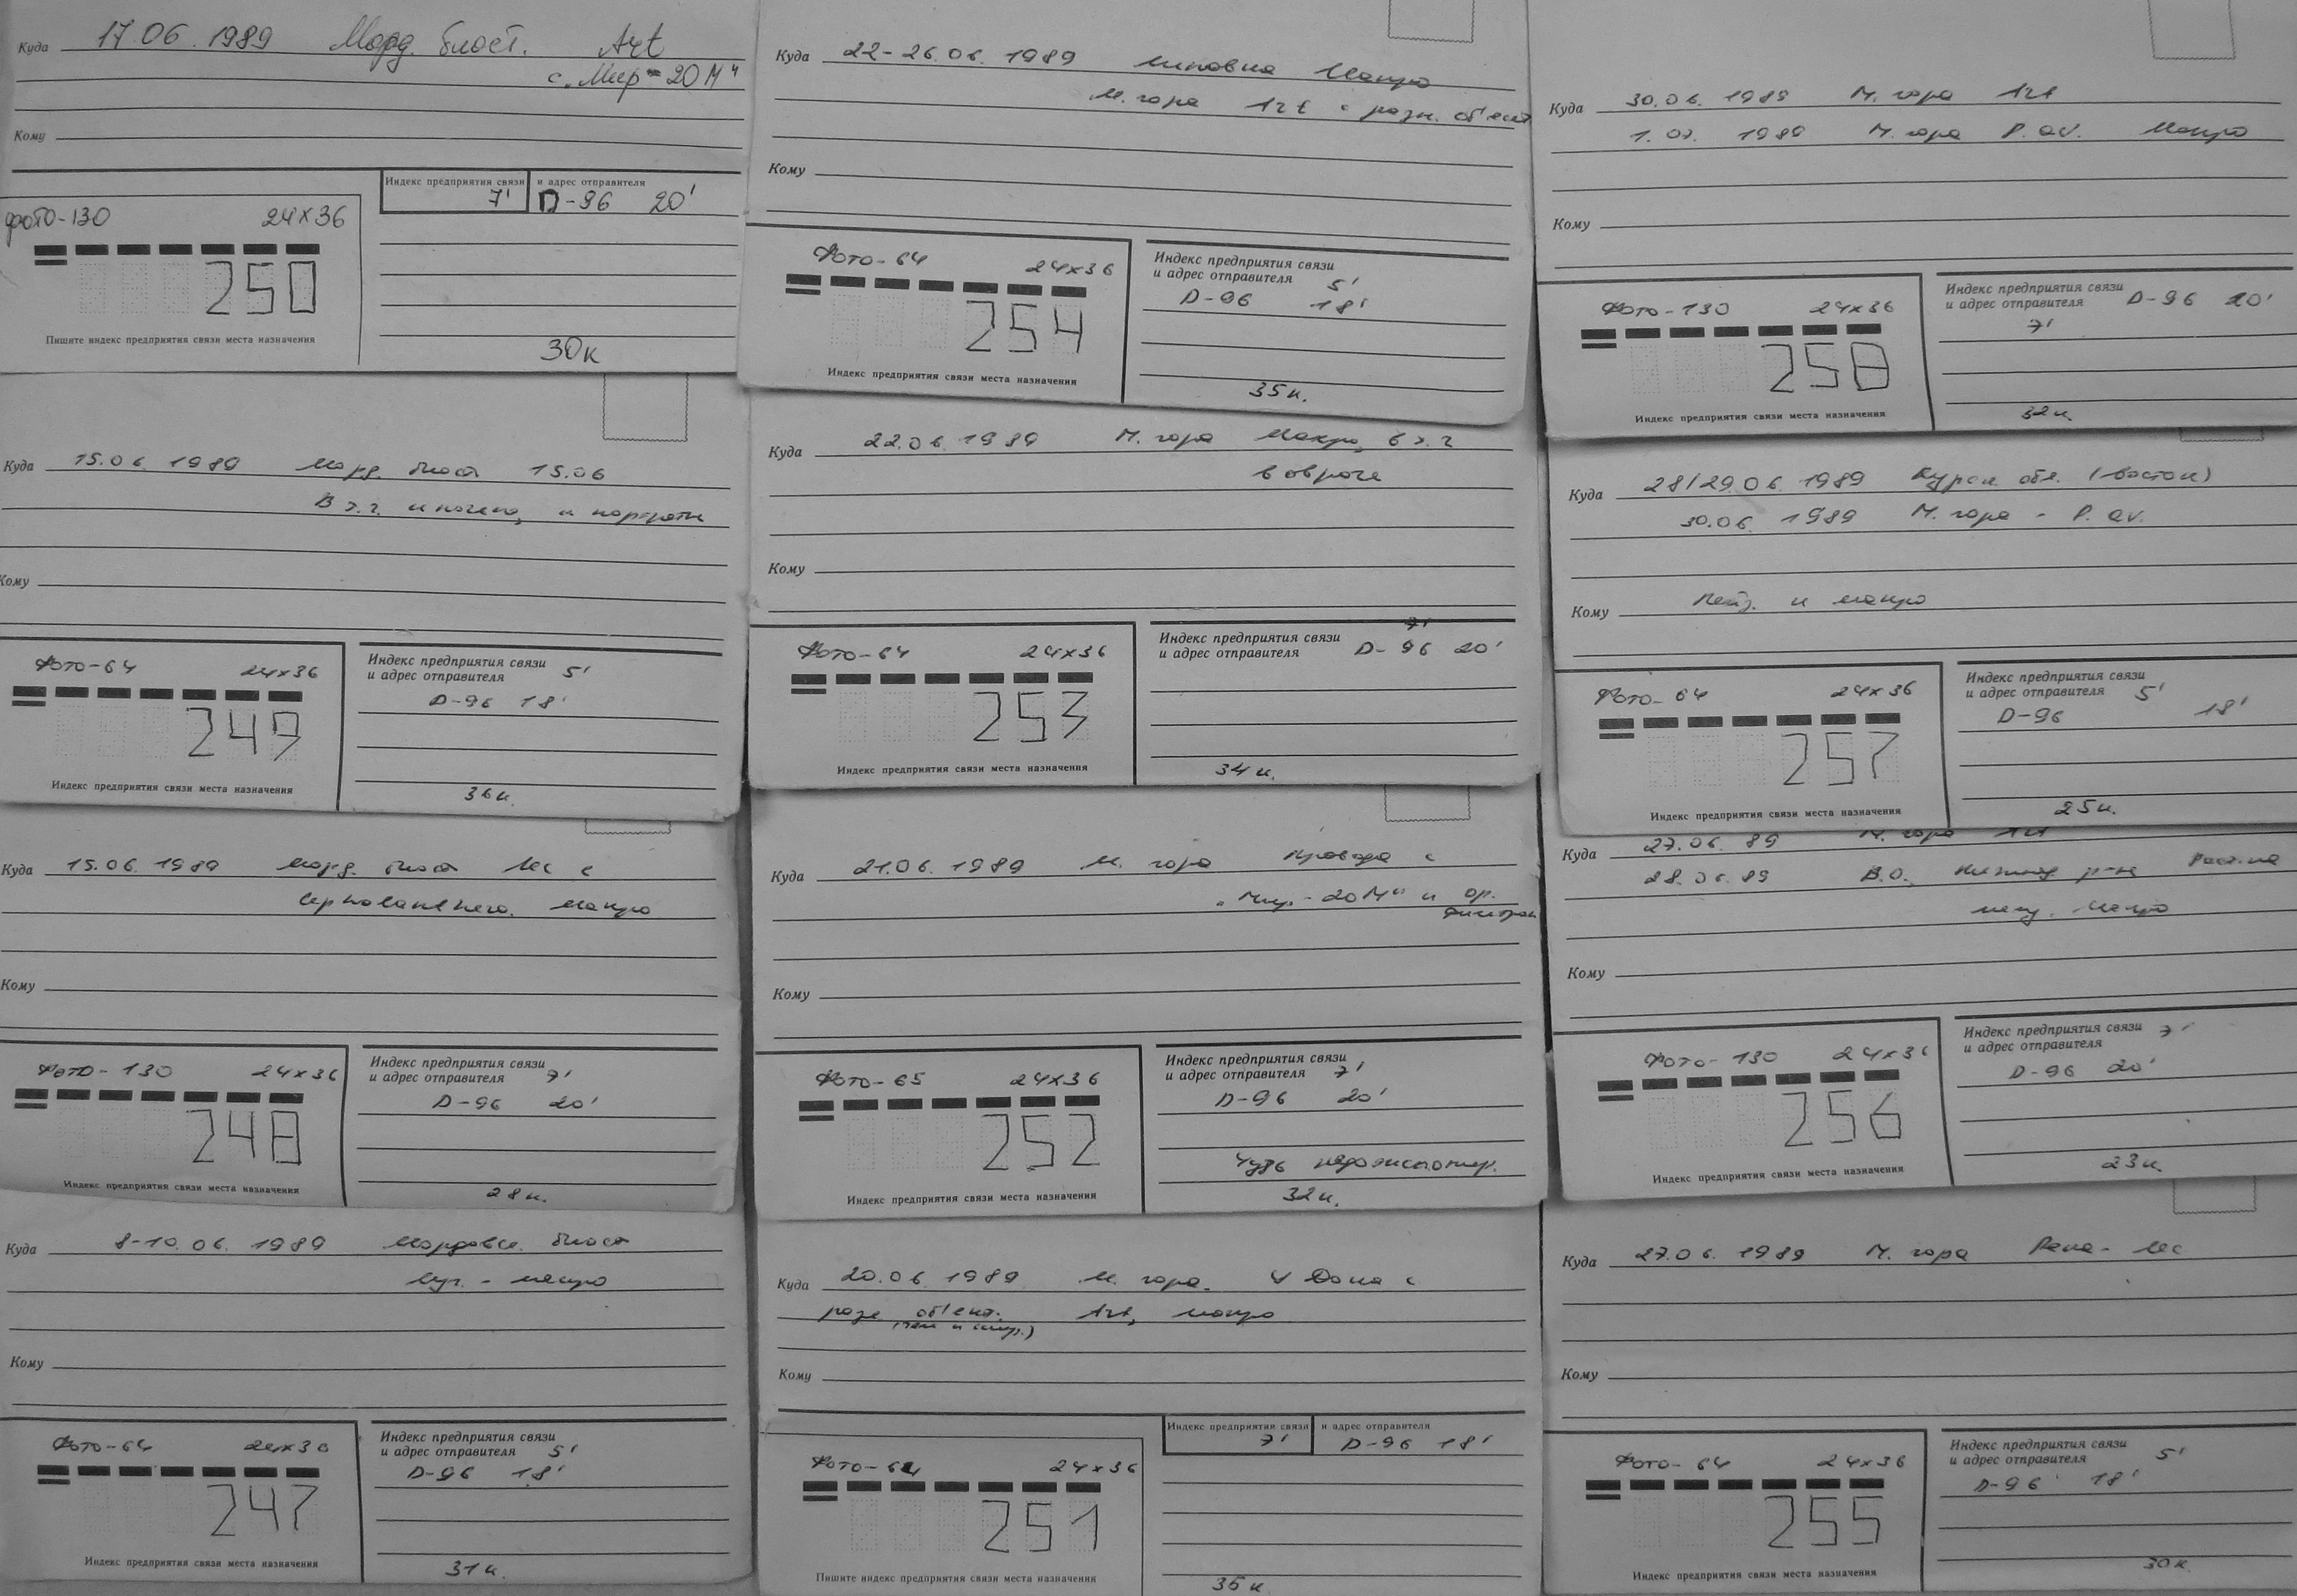 Куда 17.06.1989 Морд. биост. Art
с „Мир-20М“
Кому
Индекс предприятия связи и адрес отправителя
7' D-96 20'
фото-130 24х36
250
Пишите индекс предприятия связи места назначения
30к
Куда 15.06 1989 Морд. биост 15.06
В т.ч. и
Кому
Фото-64 24х36
Индекс предприятия связи 5'
и адрес отправителя
D-96 18'
249
Индекс предприятия связи места назначения
36к.
Куда 15.06 1989 Морд. биост Лес с
макро
Кому
Фото-130 24х36
Индекс предприятия связи
и адрес отправителя 7'
D-96 20'
248
Индекс предприятия связи места назначения
28к.
Куда 8-10.06. 1989 Мордовск. биост
макро
Кому
Фото-64 24х36
Индекс предприятия связи
и адрес отправителя 5'
D-96 18'
247
Индекс предприятия связи места назначения
31к.
Куда 22-26.06. 1989 Макро
М. гора Art с разн. об'ект
Кому
Фото-64 24х36
Индекс предприятия связи
и адрес отправителя 5'
D-96 18'
254
Индекс предприятия связи места назначения
35к.
Куда 22.06 1989 М. гора Макро, в т.ч
в овраге
Кому
Фото-64 24х36
Индекс предприятия связи 7'
и адрес отправителя D-96 20'
253
Индекс предприятия связи места назначения
34к.
Куда 21.06 1989 М. гора Природа с
„Мир-20М“ и ор.
фильтрам
Кому
Фото-65 24х36
Индекс предприятия связи
и адрес отправителя 7'
D-96 20'
252
Чуть недоэкспонир.
Индекс предприятия связи места назначения
32к.
Куда 20.06 1989 М. гора. У Дона с
разн об'ект. Art, макро
Кому
Индекс предприятия связи и адрес отправителя
7' D-96 18'
Фото-64 24х36
251
Пишите индекс предприятия связи места назначения
35к
Куда 30.06. 1989 М. гора Art
1.07. 1989 М. гора P. av. Макро
Кому
Фото-130 24х36
Индекс предприятия связи
и адрес отправителя D-96 20'
7'
258
Индекс предприятия связи места назначения
32к
Куда 28/29.06. 1989 Курск. обл. (восток)
30.06. 1989 М. гора - P. av.
Кому Пейз. и макро
Фото-64 24х36
Индекс предприятия связи
и адрес отправителя 5'
D-96 18'
257
Индекс предприятия связи места назначения
25к.
Куда 27.06. 89 М. гора Art
28.06.89 В.О. р-н
Макро
Кому
Фото-130 24х36
Индекс предприятия связи 7'
и адрес отправителя
D-96 20'
256
Индекс предприятия связи места назначения
23к.
Куда 27.06. 1989 М. гора Река - лес
Кому
Фото-64 24х36
Индекс предприятия связи 5'
и адрес отправителя
D-96 18'
255
Индекс предприятия связи места назначения
30к.